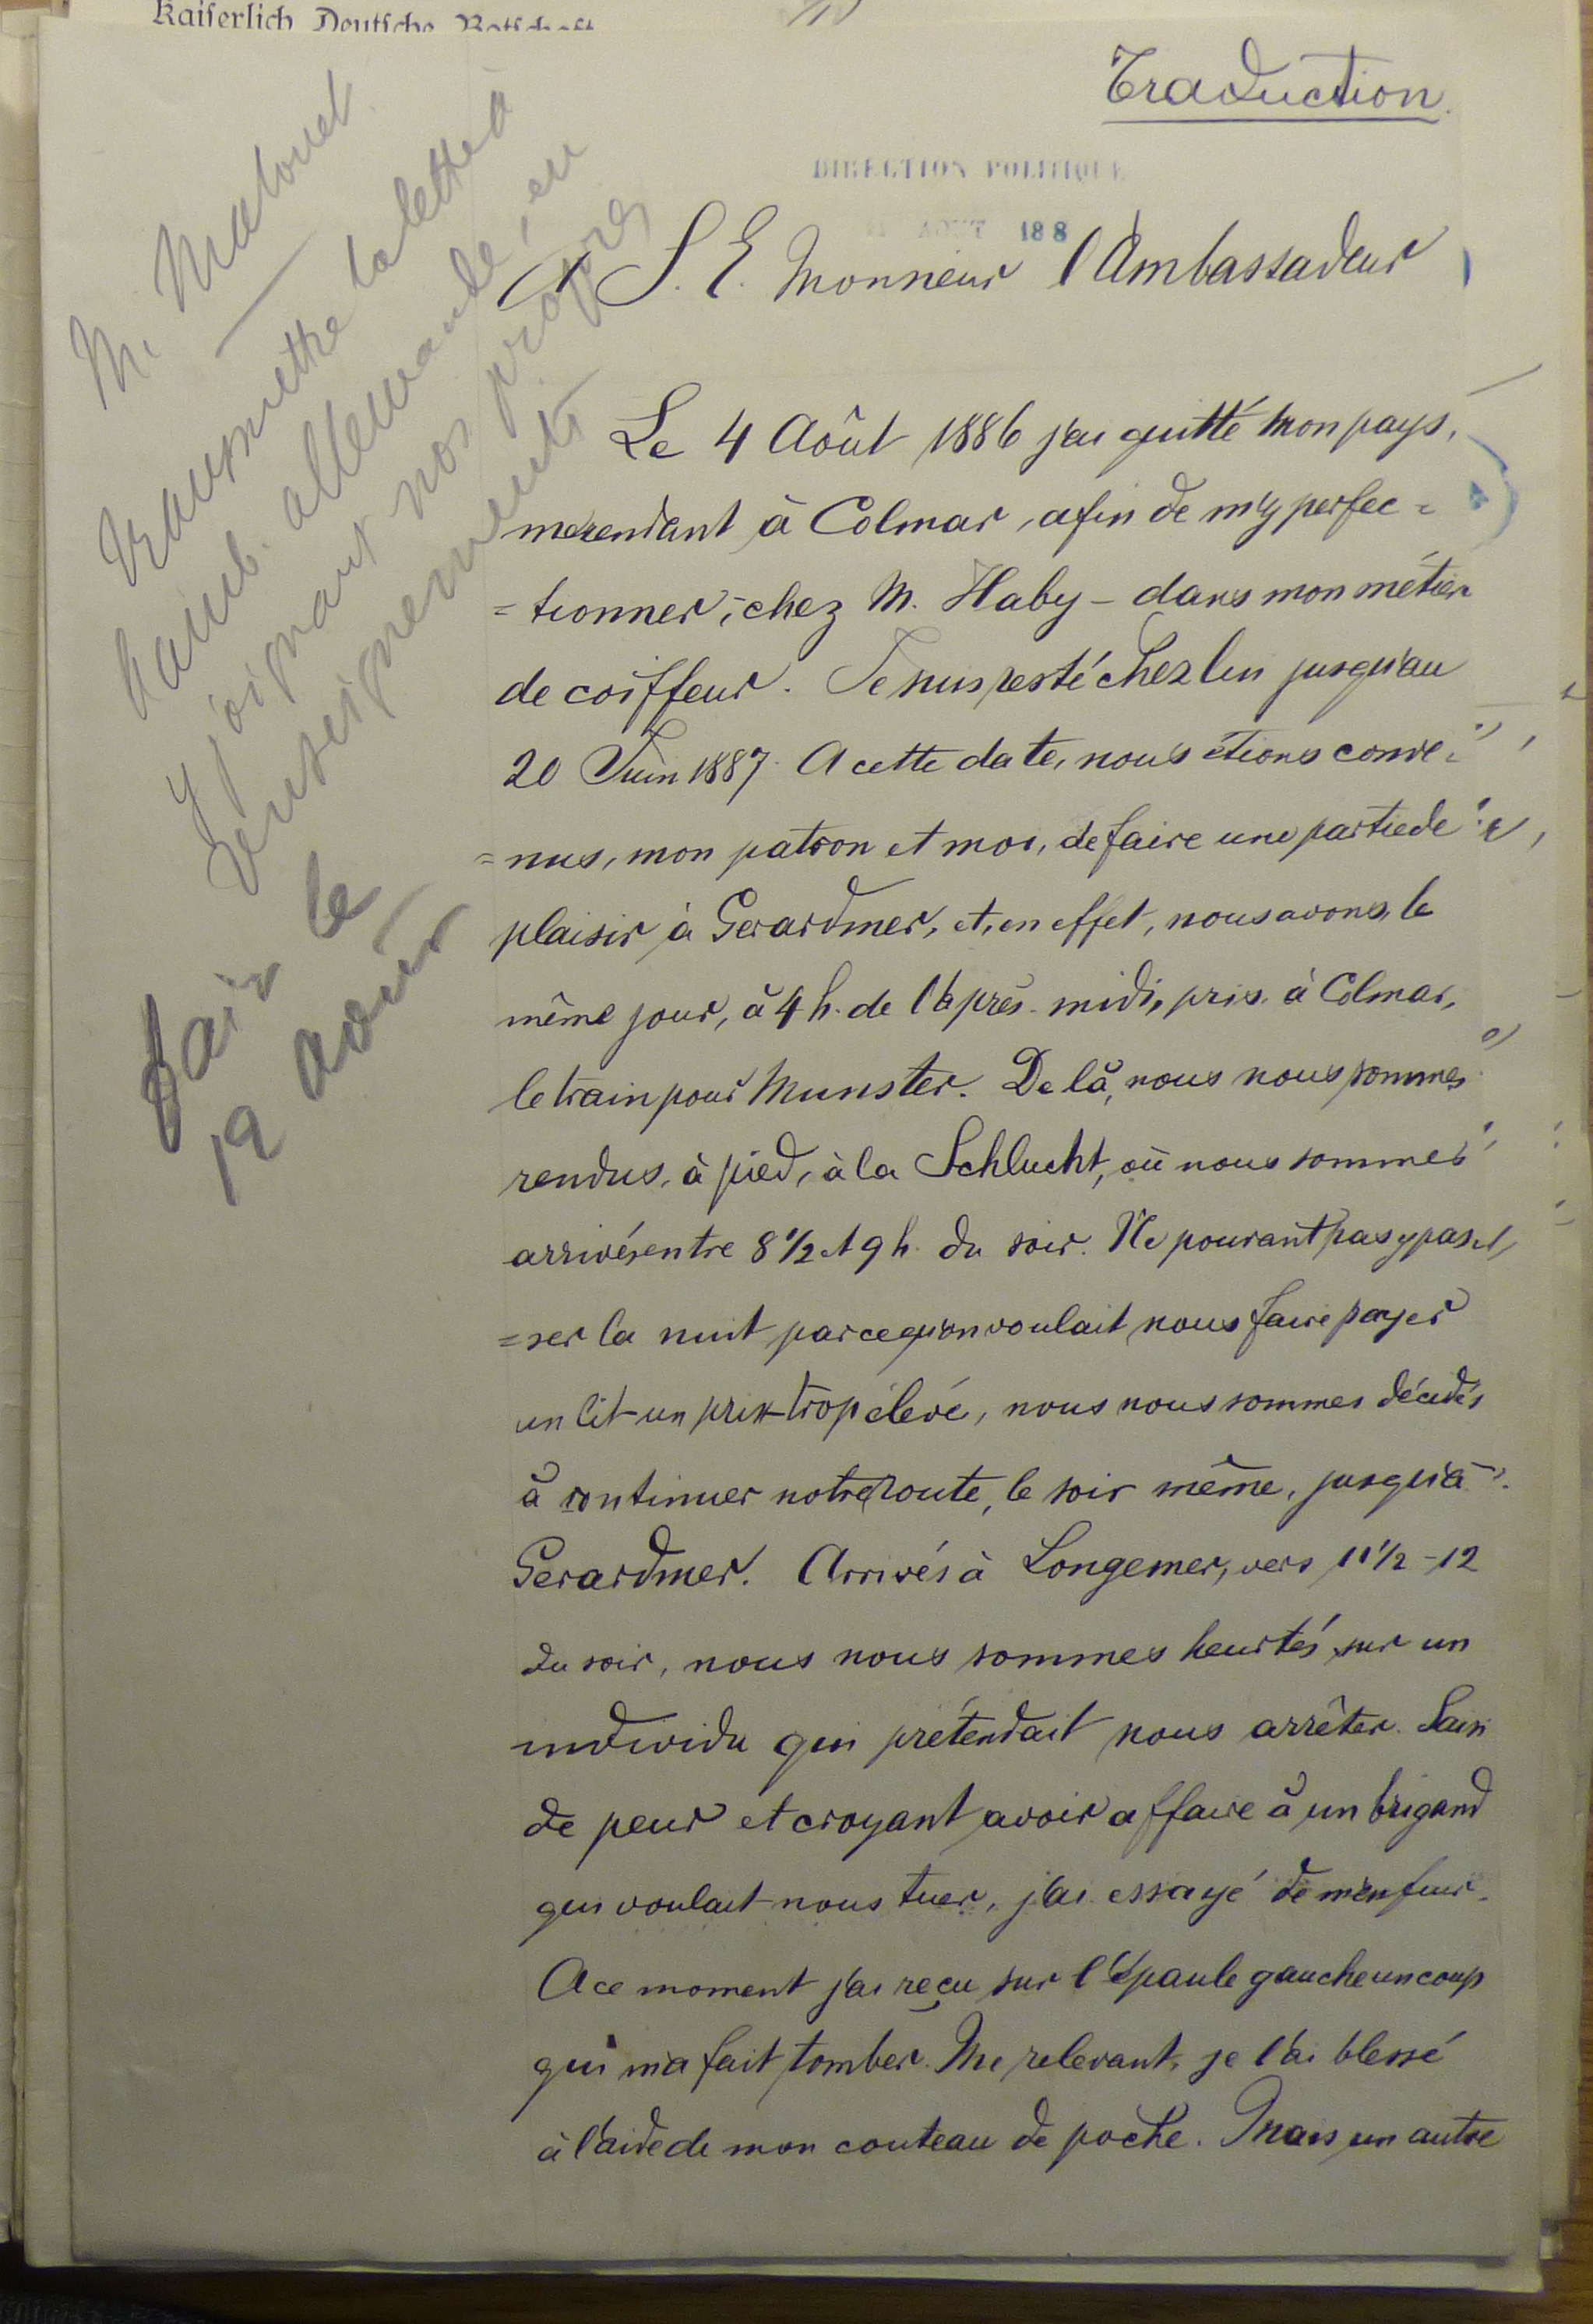 Kaiserlich Deutsche Botschaft
Traduction
DIRECTION POLITIQUE
AOUT 188
A S. E. Monsieur l'Ambassadeur
M.
transmettre la lettre à
l'amb. allemande, en
y joignant nos propres
renseignements
fait le
19 août
Le 4 Août 1886 j'ai quitté mon pays,
me rendant à Colmar, afin de m'y perfec=
=tionner, chez M. Haby – dans mon métier
de coiffeur. Je suis resté chez lui jusqu'au
20 Juin 1887. A cette date, nous étions conve=
=nus, mon patron et moi, de faire une partie de
plaisir à Gerardmer, et, en effet, nous avons, le
même jour, à 4 h. de l'après-midi, pris, à Colmar,
le train pour Munster. De là, nous nous sommes
rendus, à pied, à la Schlucht, où nous sommes
arrivés entre 8 1/2 et 9 h. du soir. Ne pouvant pas y pas=
=ser la nuit parce qu'on voulait nous faire payer
un lit un prix trop élevé, nous nous sommes décidés
à continuer notre route, le soir même, jusqu'à
Gerardmer. Arrivés à Longemer, vers 11 1/2 - 12
du soir, nous nous sommes heurtés sur un
individu qui prétendait nous arrêter. Saisi
de peur et croyant avoir affaire à un brigand
qui voulait nous tuer, j'ai essayé de m'enfuir.
A ce moment j'ai reçu sur l'épaule gauche un coup
qui m'a fait tomber. Me relevant, je l'ai blessé
à l'aide de mon couteau de poche. Mais un autre